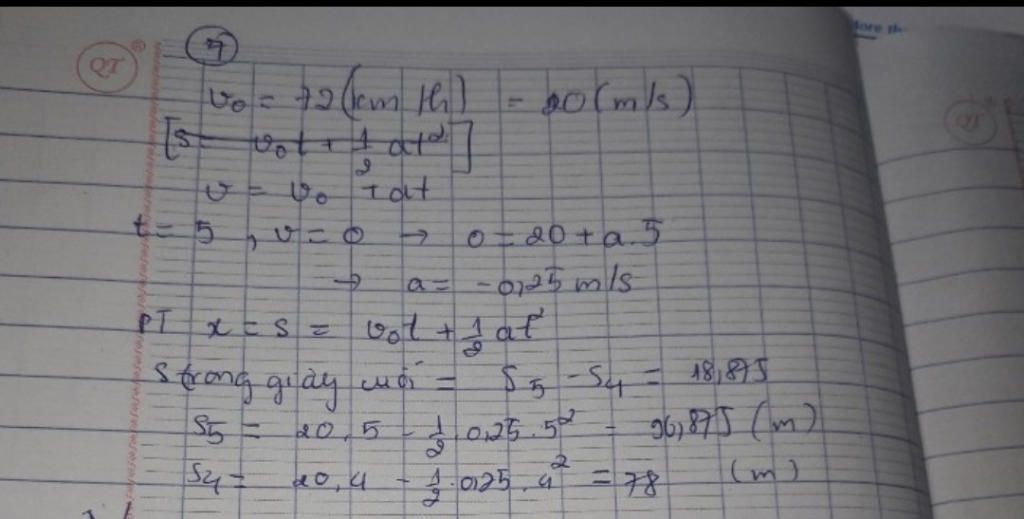 QT
7
v₀ = 72 (km/h) = 20 (m/s)
[s = v₀t + 1/2 at²]
v = v₀ + at
t = 5, v = 0 → 0 = 20 + a.5
→ a = -0,25 m/s
PT x = s = v₀t + 1/2 at²
S trong giây cuối = S₅ - S₄ = 18,875
S₅ = 20.5 - 1/2.0,25.5² = 96,875 (m)
S₄ = 20.4 - 1/2.0,25.4² = 78 (m)
QT